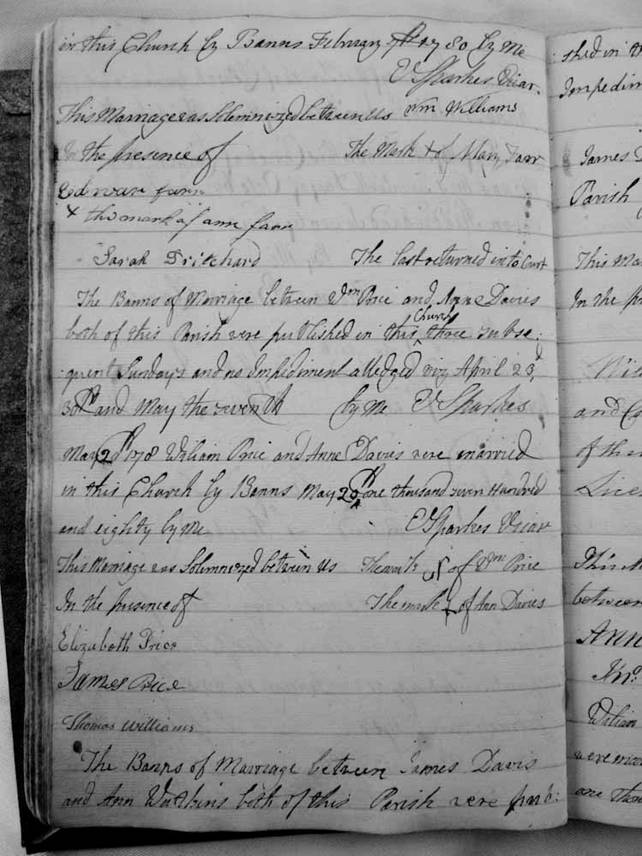 in this Church by Banns February 1780 by Me
E Sparkes Vicar.
This Marriage was Solemnized between Us Wm Williams
In the presence of The Mark + of Mary Farr
Edwar farr
+ the mark of ann farr
Sarah Pritchard The last returned into Court
The Banns of Marriage between Wm Price and Anne Davies
both of this Parish were published in this Church three subse:
quent Sundays and no Impediment alledged viz April 23d,
30th and May the seventh by me E Sparkes
May 20th 178 William Price and Anne Davies were married
in this Church by Banns May 20th one thousand seven Hundred
and eighty by me E Sparkes Vicar
This Marriage was Solemnized between Us The mark of Wm Price
In the presence of The mark of Ann Davies
Elizabeth Price
James Price
Thomas Williams
The Banns of Marriage between James Davis
and Ann Watkins both of this Parish were pub:
shed in
Impedim
James D
Parish
This Ma
In the p
and
of the
Lice
This M
between
Ann
Jno
William
were mar
one thou